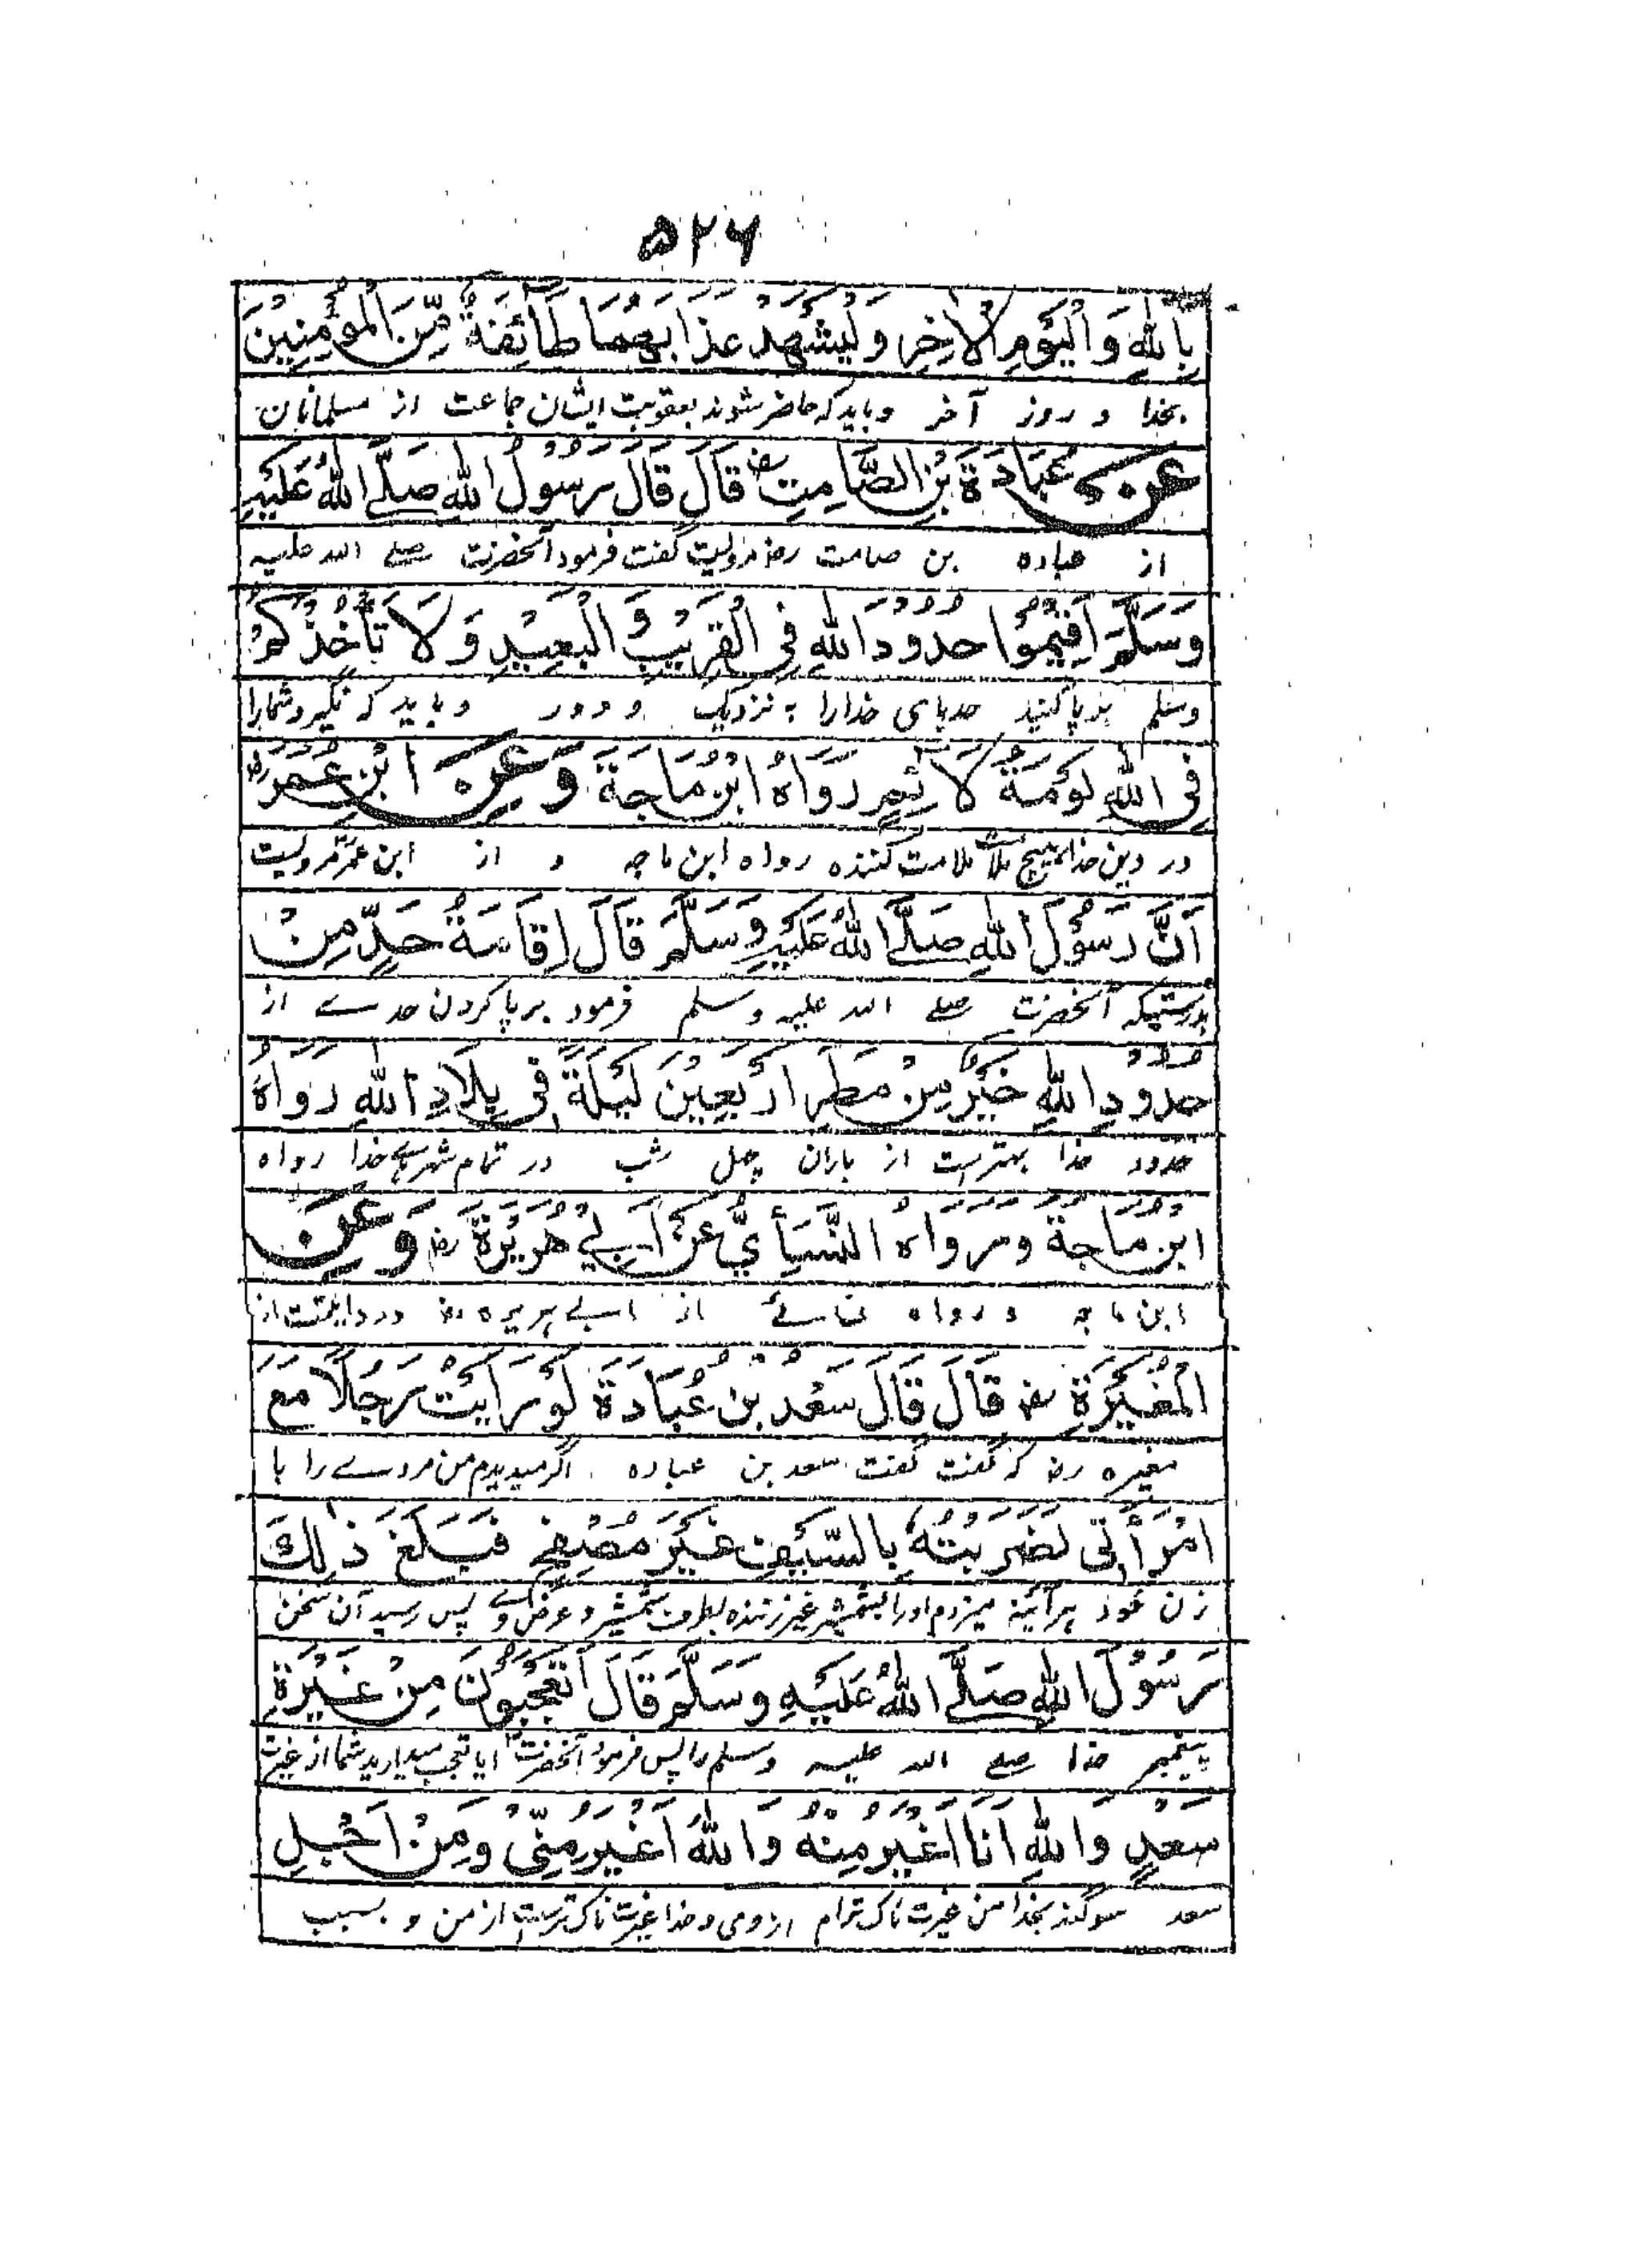 ۵۲۶
بِاللهِ وَالْيَوْمِ الْاٰخِرِ وَلْيَشْهَدْ عَذَابَهُمَا طَآئِفَةٌ مِّنَ الْمُؤْمِنِيْنَ
بخدا و روز آخر و باید که حاضر شوند بعقوبت ایشان جماعت از مسلمانان
عَنْ عُبَادَةَ بْنِ الصَّامِتِ رض قَالَ قَالَ رَسُوْلُ اللهِ صَلَّے اللهُ عَلَيْهِ
از عباده بن صامت رض مرویست گفت فرمود آنحضرت صلے الله علیه
وَسَلَّمَ اَقِيْمُوْا حُدُوْدَ اللهِ فِى الْقَرِيْبِ وَالْبَعِيْدِ وَلَا تَأْخُذْكُمْ
وسلم برپا کنید حدهای خدا را به نزدیک و دور و باید که نگیرد شمارا
فِى اللهِ لَوْمَةُ لَائِمٍ رَوَاهُ ابْنُ مَاجَةَ وَعَنِ ابْنِ عُمَرَ رض
در دین خدا هیچ ملامت ملامت کننده رواه ابن ماجه و از ابن عمر مرویست
اَنَّ رَسُوْلَ اللهِ صَلَّے اللهُ عَلَيْهِ وَسَلَّمَ قَالَ اِقَامَةُ حَدٍّ مِنْ
بدرستیکه آنحضرت صلے الله علیه وسلم فرمود برپا کردن حدے از
حُدُوْدِ اللهِ خَيْرٌ مِنْ مَطَرِ اَرْبَعِيْنَ لَيْلَةً فِى بِلَادِ اللهِ رَوَاهُ
حدود خدا بهترست از باران چهل شب در تمام شهرهاے خدا رواه
ابْنُ مَاجَةَ وَرَوَاهُ النَّسَأِيُّ عَنْ اَبِيْ هُرَيْرَةَ رض وَعَنِ
ابن ماجه و رواه نسائے از ابے هریره رض و روایتست از
الْمُغِيْرَةِ رض قَالَ قَالَ سَعْدُ بْنُ عُبَادَةَ لَوْ رَاَيْتُ رَجُلًا مَعَ
مغیره رض که گفت گفت سعد بن عباده اگر میدیدم من مردے را با
امْرَأَتِى لَضَرَبْتُهُ بِالسَّيْفِ غَيْرَ مُصْفِحٍ فَبَلَغَ ذٰلِكَ
زن خود هر آئینه میزدم او را بشمشیر غیر زننده بطرف شمشیر و عرض وے پس رسید آن سخن
رَسُوْلَ اللهِ صَلَّے اللهُ عَلَيْهِ وَسَلَّمَ قَالَ اَتَعْجَبُوْنَ مِنْ غَيْرَةِ
پیغمبر خدا صلے الله علیه وسلم را پس فرمود آنحضرت ایا تعجب میدارید شما از غیرت
سَعْدٍ وَاللهِ اَنَا اَغْيَرُ مِنْهُ وَاللهُ اَغْيَرُ مِنِّىْ وَمِنْ اَجْلِ
سعد سوگند بخدا من غیرت ناک ترام از وی و خدا غیرت ناک ترست از من و بسبب